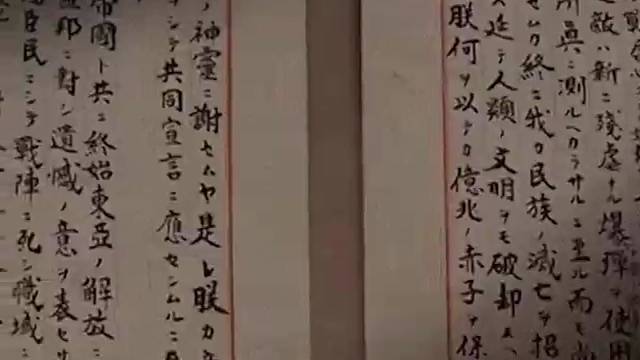 敵ハ新ニ殘虐ナル爆彈ヲ使用
所眞ニ測ルヘカラサルニ至ル而モ
セムカ終ニ我カ民族ノ滅亡ヲ招
延テ人類ノ文明ヲモ破却スヘ
朕何ヲ以テカ億兆ノ赤子ヲ保
ノ神靈ニ謝セムヤ是レ朕カ
シテ共同宣言ニ應セシムルニ
帝國ト共ニ終始東亞ノ解放ニ
盟邦ニ對シ遺憾ノ意ヲ表セサ
臣民ニシテ戰陣ニ死シ職域ニ